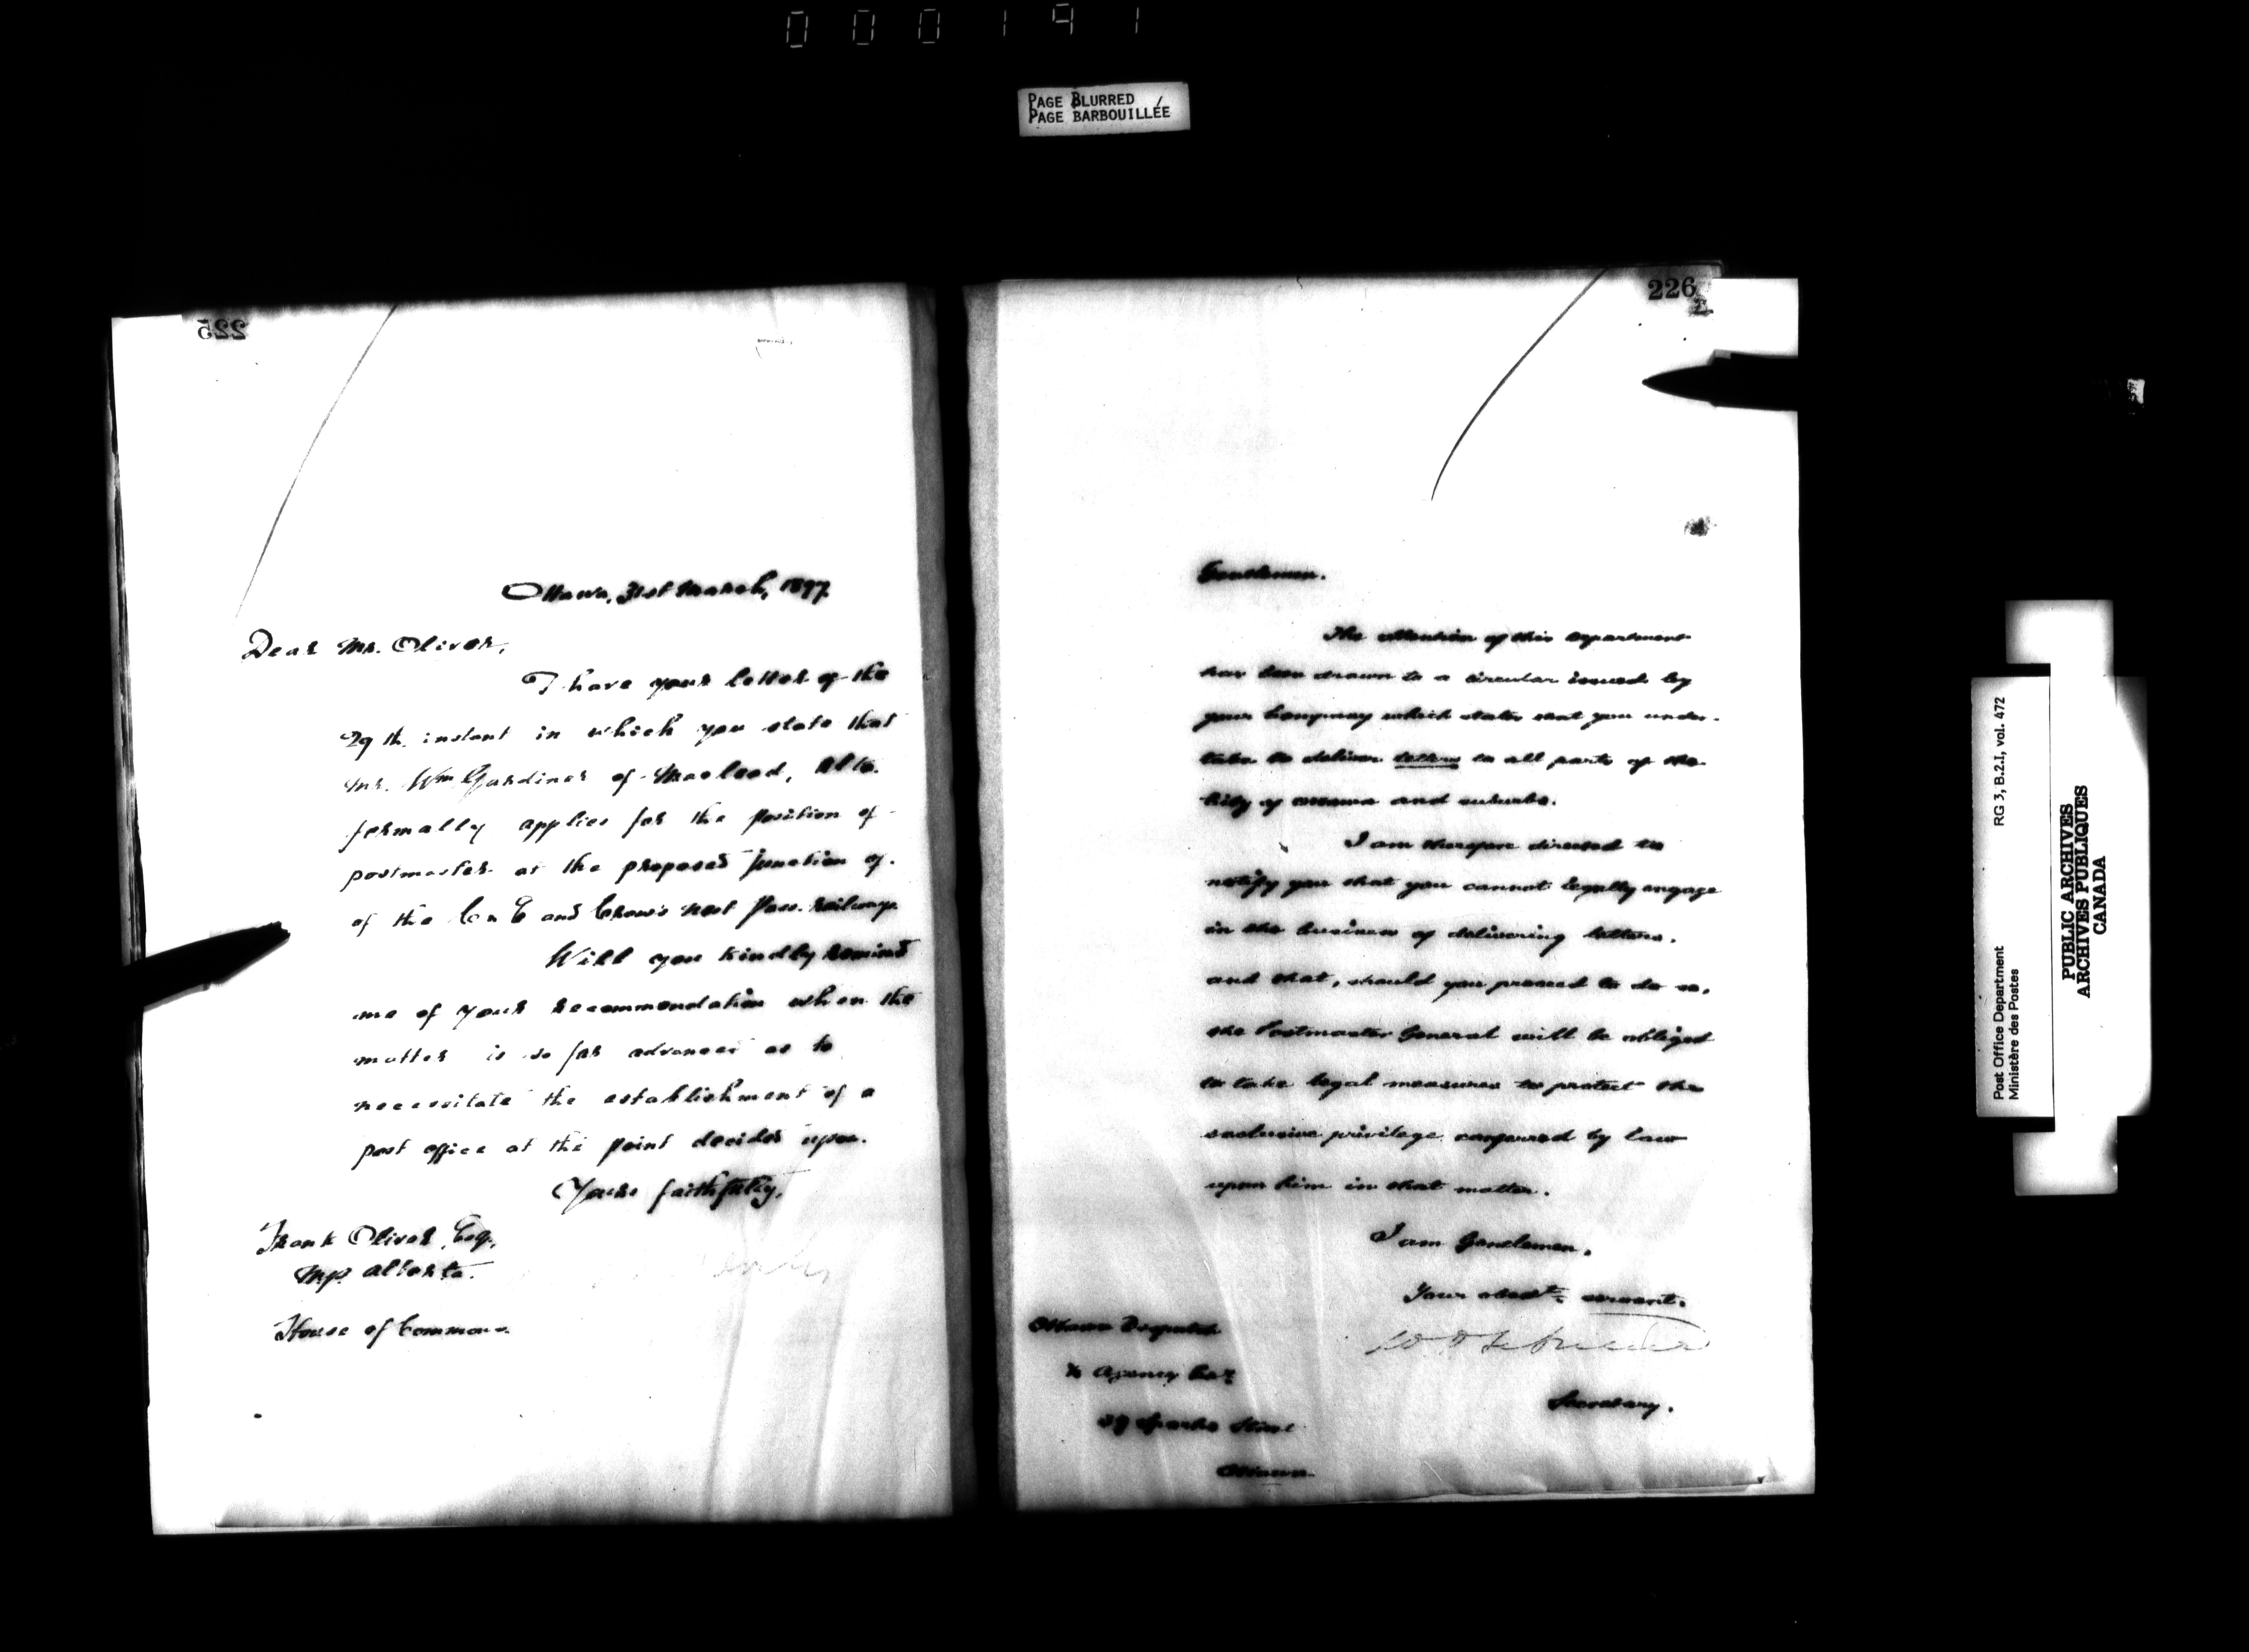 000191
PAGE BLURRED
PAGE BARBOUILLÉE
225
Ottawa, 31st March, 1897.
Dear Mr. Oliver,
I have your letter of the
29th. instant in which you state that
Mr. Wm Gardiner of Macleod, Alta.
formally applies for the position of
postmaster at the proposed junction of
of the C & E and Crow's nest Pass. railways
Will you kindly remind
me of your recommendation when the
matter is so far advanced as to
necessitate the establishment of a
post office at the point decided upon.
Yours faithfully,
Frank Oliver, Esq.,
M.P. Alberta.
House of Commons.
226
Gentlemen.
The attention of this department
has been drawn to a circular issued by
your Company which states that you under-
take to deliver letters to all parts of the
City of Ottawa and suburbs.
I am therefore directed to
notify you that you cannot legally engage
in the business of delivering letters.
and that, should you proceed to do so,
the Postmaster General will be obliged
to take legal measures to protect the
exclusive privilege conferred by law
upon him in that matter.
I am Gentlemen.
Your obedt. servant.
Secretary.
Ottawa Despatch
& Agency Coy
39 Sparks Street
Ottawa.
Post Office Department RG 3, B.2.I, vol. 472
Ministère des Postes
PUBLIC ARCHIVES
ARCHIVES PUBLIQUES
CANADA